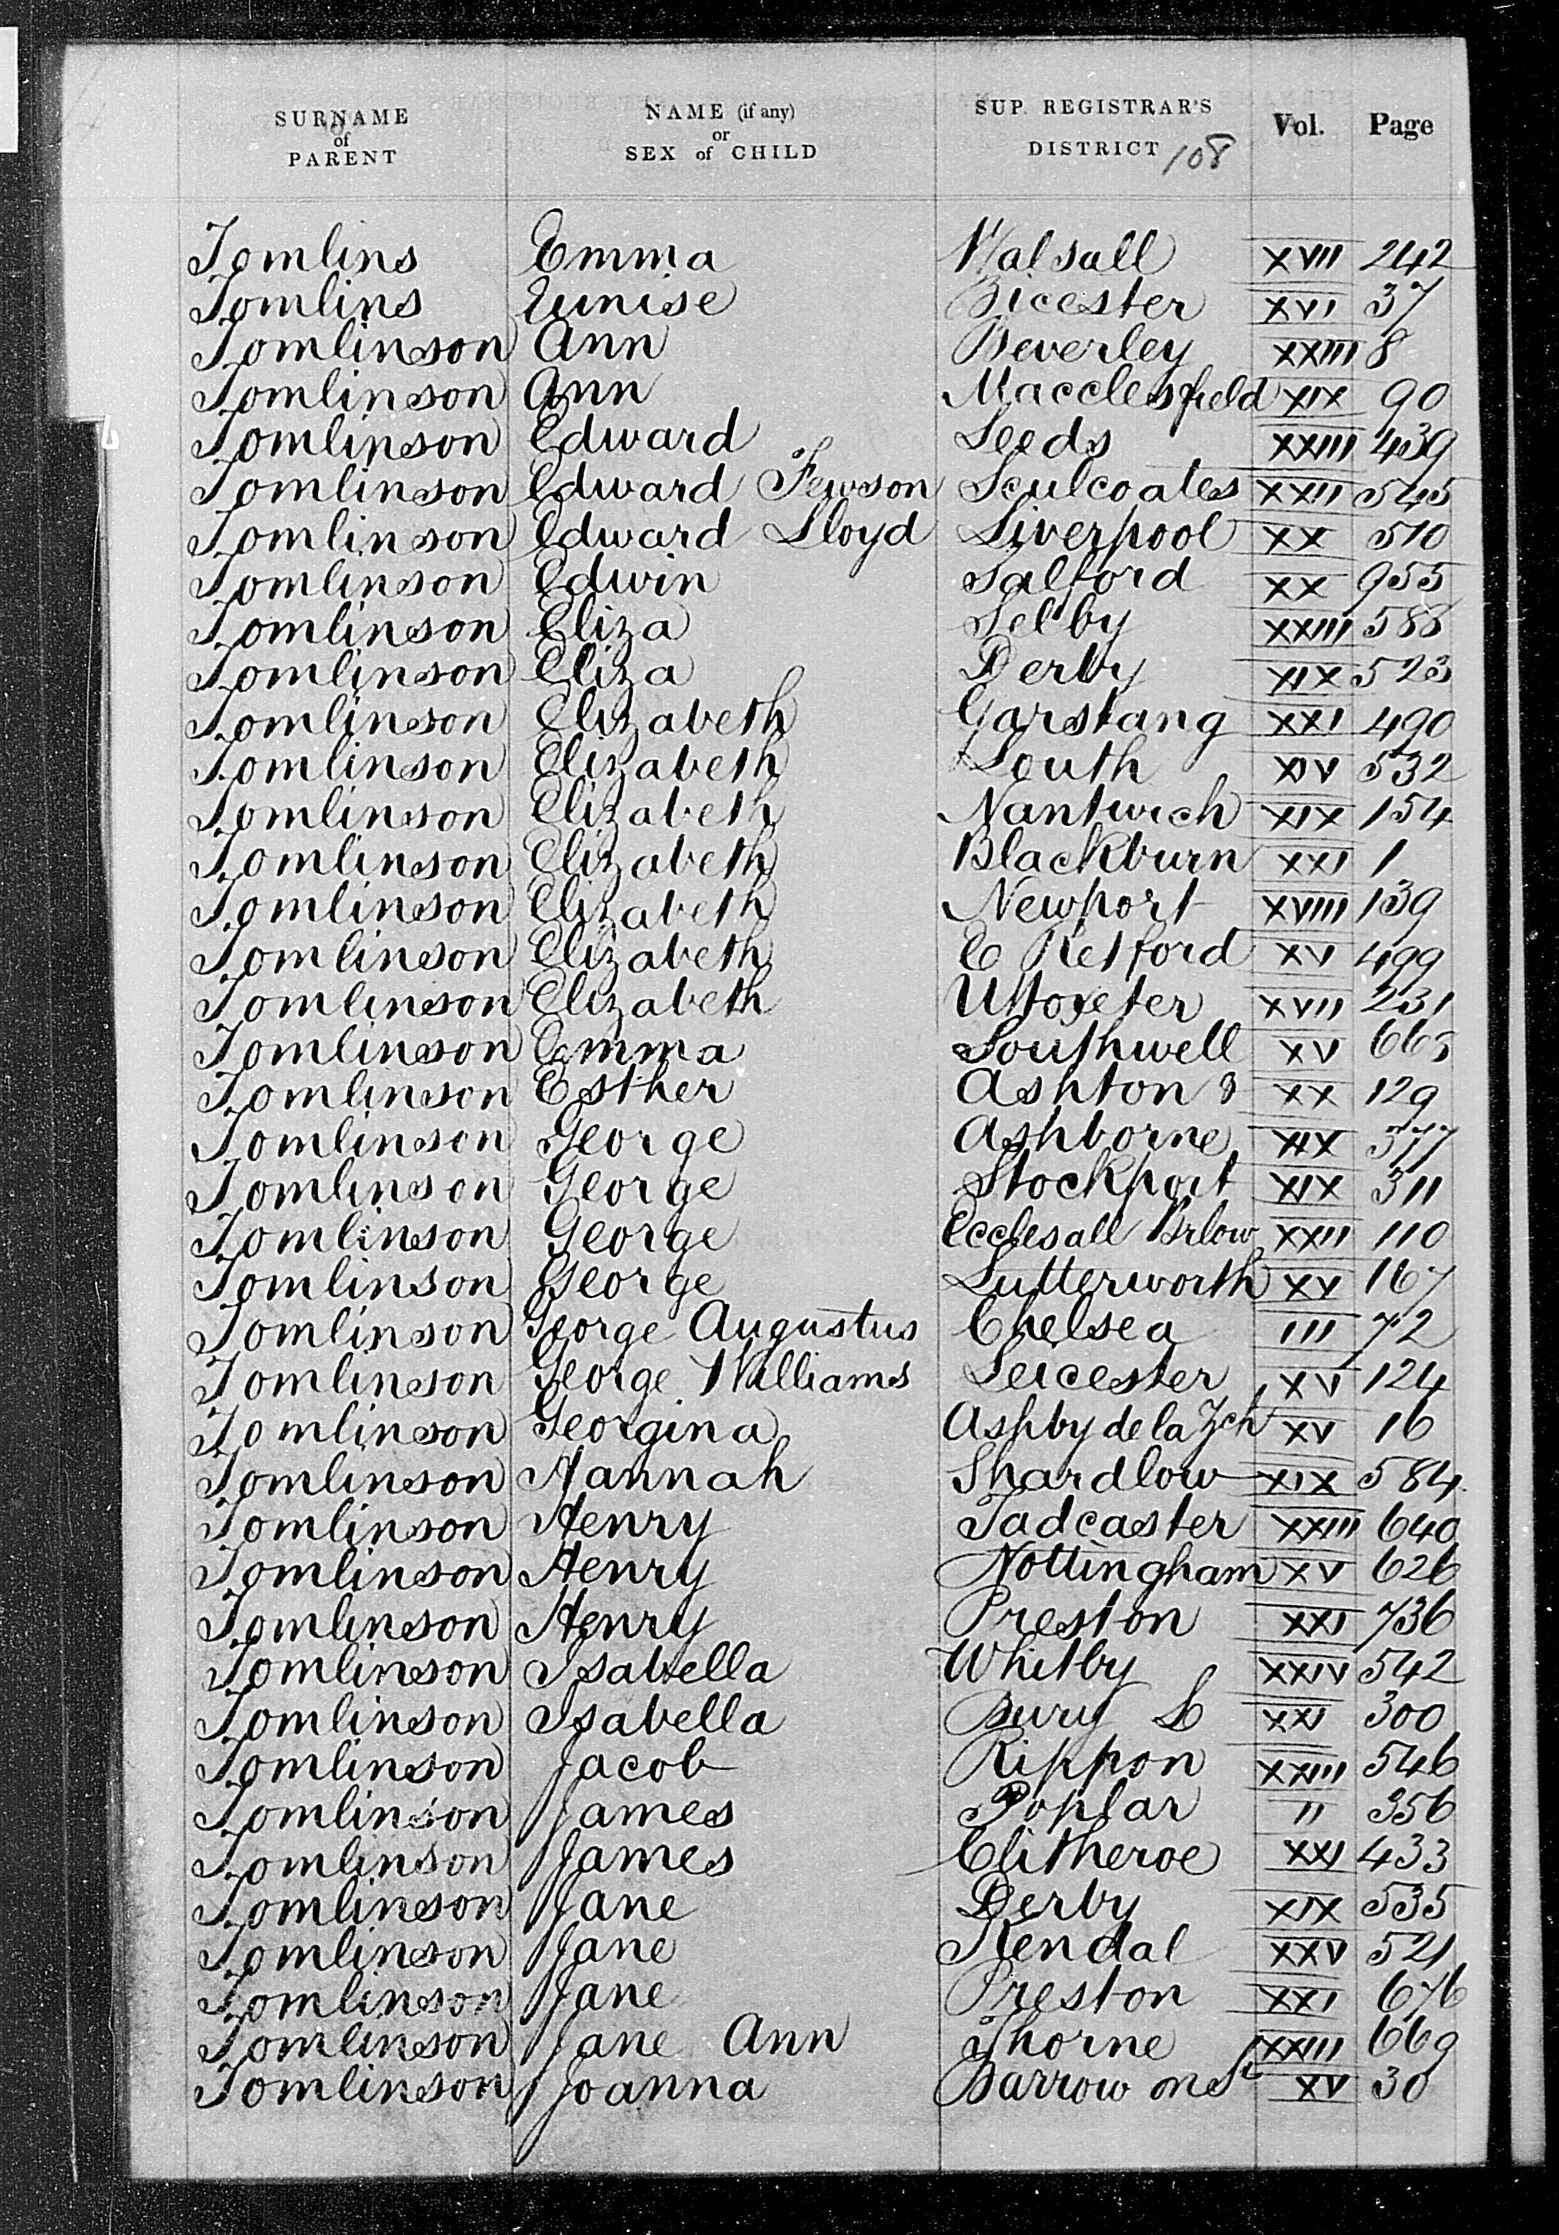 SURNAME of PARENT NAME (if any) or SEX of CHILD SUP. REGISTRAR'S DISTRICT 108 Vol. Page
Tomlins Emma Walsall XVII 242
Tomlins Eunise Bicester XVI 37
Tomlinson Ann Beverley XXIII 8
Tomlinson Ann Macclesfield XIX 90
Tomlinson Edward Leeds XXIII 439
Tomlinson Edward Fewson Sculcoates XXII 545
Tomlinson Edward Lloyd Liverpool XX 510
Tomlinson Edwin Salford XX 955
Tomlinson Eliza Selby XXIII 588
Tomlinson Eliza Derby XIX 523
Tomlinson Elizabeth Garstang XXI 490
Tomlinson Elizabeth Louth XIV 532
Tomlinson Elizabeth Nantwich XIX 154
Tomlinson Elizabeth Blackburn XXI 1
Tomlinson Elizabeth Newport XVIII 139
Tomlinson Elizabeth E Retford XV 499
Tomlinson Elizabeth Uttoxeter XVII 231
Tomlinson Emma Southwell XV 665
Tomlinson Esther Ashton & XX 129
Tomlinson George Ashborne XIX 377
Tomlinson George Stockport XIX 311
Tomlinson George Ecclesall Brlow XXII 110
Tomlinson George Lutterworth XV 167
Tomlinson George Augustus Chelsea III 72
Tomlinson George Williams Leicester XV 124
Tomlinson Georgina Ashby de la Zch XV 16
Tomlinson Hannah Shardlow XIX 584
Tomlinson Henry Tadcaster XXIII 640
Tomlinson Henry Nottingham XV 626
Tomlinson Henry Preston XXI 736
Tomlinson Isabella Whitby XXIV 542
Tomlinson Isabella Bury L XXI 300
Tomlinson Jacob Rippon XXIII 546
Tomlinson James Poplar II 356
Tomlinson James Clitheroe XXI 433
Tomlinson Jane Derby XIX 535
Tomlinson Jane Kendal XXV 521
Tomlinson Jane Preston XXI 676
Tomlinson Jane Ann Thorne XXIII 669
Tomlinson Joanna Barrow on Sr XV 30